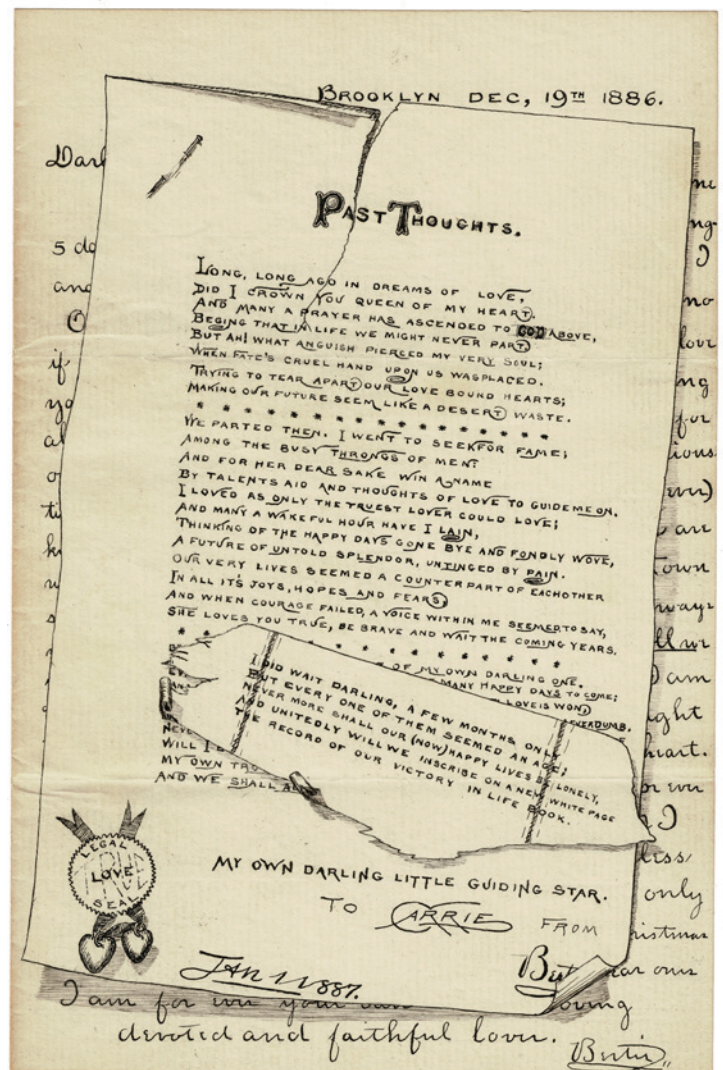 BROOKLYN DEC, 19TH 1886.
PAST THOUGHTS.
LONG, LONG AGO IN DREAMS OF LOVE,
DID I CROWN YOU QUEEN OF MY HEART.
AND MANY A PRAYER HAS ASCENDED TO GOD ABOVE,
BEGING THAT IN LIFE WE MIGHT NEVER PART
BUT AH! WHAT ANGUISH PIERCED MY VERY SOUL;
WHEN FATE'S CRUEL HAND UPON US WAS PLACED.
TRYING TO TEAR APART OUR LOVE BOUND HEARTS;
MAKING OUR FUTURE SEEM LIKE A DESERT WASTE.
* * * * * * * * * * * * * * *
WE PARTED THEN. I WENT TO SEEK FOR FAME;
AMONG THE BUSY THRONGS OF MEN:
AND FOR HER DEAR SAKE WIN A NAME
BY TALENTS AID AND THOUGHTS OF LOVE TO GUIDE ME ON.
I LOVED AS ONLY THE TRUEST LOVER COULD LOVE;
AND MANY A WAKEFUL HOUR HAVE I LAIN,
THINKING OF THE HAPPY DAYS GONE BYE AND FONDLY WOVE,
A FUTURE OF UNTOLD SPLENDOR, UNTINGED BY PAIN.
OUR VERY LIVES SEEMED A COUNTERPART OF EACHOTHER
IN ALL IT'S JOYS, HOPES AND FEARS,
AND WHEN COURAGE FAILED, A VOICE WITHIN ME SEEMED TO SAY,
SHE LOVES YOU TRUE, BE BRAVE AND WAIT THE COMING YEARS.
OF MY OWN DARLING ONE.
MANY HAPPY DAYS TO COME;
LOVE IS WON,
EVER DUMB.
I DID WAIT DARLING, A FEW MONTHS ONLY
BUT EVERY ONE OF THEM SEEMED AN AGE;
NEVER MORE SHALL OUR (NOW) HAPPY LIVES BE LONELY,
AND UNITEDLY WILL WE INSCRIBE ON A NEW WHITE PAGE
THE RECORD OF OUR VICTORY IN LIFE BOOK.
WILL I
MY OWN TR
AND WE SHALL A
LEGAL
TRUE
LOVE
SEAL
MY OWN DARLING LITTLE GUIDING STAR.
TO CARRIE FROM
Bert
JAN 1 1887.
Darl
5 do
and
O
if
yo
al
ng
I
no
love
ng
for
ious
ever)
are
own
ways
ll we
I am
ght
heart.
or ever
I
less
only
ristmas
ear ones
I am for ever your own loving
devoted and faithful lover.
Bertie